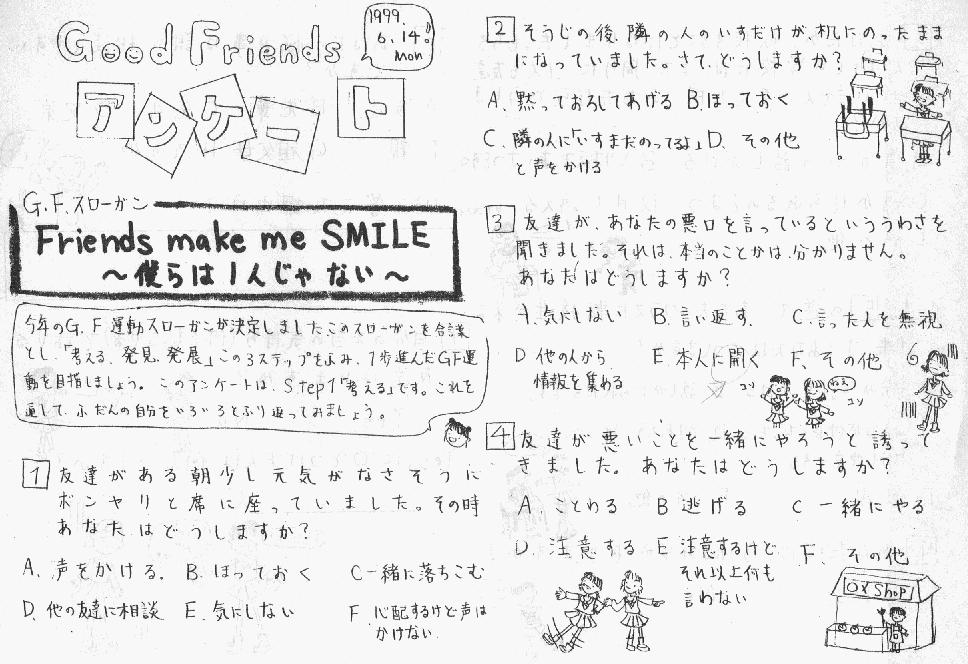 Good Friends
1999.
6.14.
Mon
アンケート
G.F.スローガン
Friends make me SMILE
～僕らは1人じゃない～
今年のG.F運動スローガンが決定しました。このスローガンを合言葉
とし、「考える、発見、発展」この3ステップをふみ、1歩進んだGF運
動を目指しましょう。このアンケートは、Step1「考える」です。これを
通して、ふだんの自分をいろいろとふり返ってみましょう。
1 友達がある朝少し元気がなさそうに
ボンヤリと席に座っていました。その時
あなたはどうしますか?
A. 声をかける. B. ほっておく C 一緒に落ちこむ
D. 他の友達に相談 E. 気にしない F. 心配するけど声は
かけない
2 そうじの後、隣の人のいすだけが、机にのったまま
になっていました。さて、どうしますか?
A. 黙っておろしてあげる B. ほっておく
C. 隣の人に「いすまだのってるよ」 D. その他
と声をかける
3 友達が、あなたの悪口を言っているといううわさを
聞きました。それは、本当のことかは、分かりません。
あなたはどうしますか?
A. 気にしない B. 言い返す. C. 言った人を無視
D 他の人から E 本人に聞く F. その他
情報を集める
コソ
ねえ
コソ
4 友達が悪いことを一緒にやろうと誘って
きました。あなたはどうしますか?
A. ことわる B 逃げる C 一緒にやる
D. 注意する E 注意するけど F. その他
それ以上何も
言わない
Shop